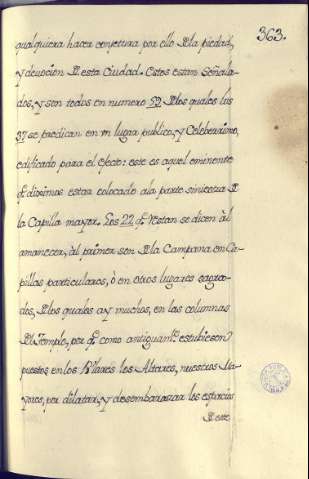 363.
qualquiera hacer conjetura por ello D la piedad,
y devocion D esta Ciudad. Estos estan Señala-
dos, y son todos en numero 59 D los quales los
37 se predican en vn lugar publico, y Celeberrimo,
edificado para el efecto: este es aquel eminente
q̃ diximos estar colocado ala parte siniestra D
la Capilla mayor. Los 22 q̃ restan se dicen àl
amanecer, àl primer son D la Campana en Ca-
pillas particulares, ò en otros lugares sagra-
dos, D los quales ay muchos, en las columnas
Dl Templo, por q̃ como antiguamte. estubiesen
puestos en los Pilares los Altares, nuestros Ma-
yores, por dilatar, y desembarazar los espacios
D este